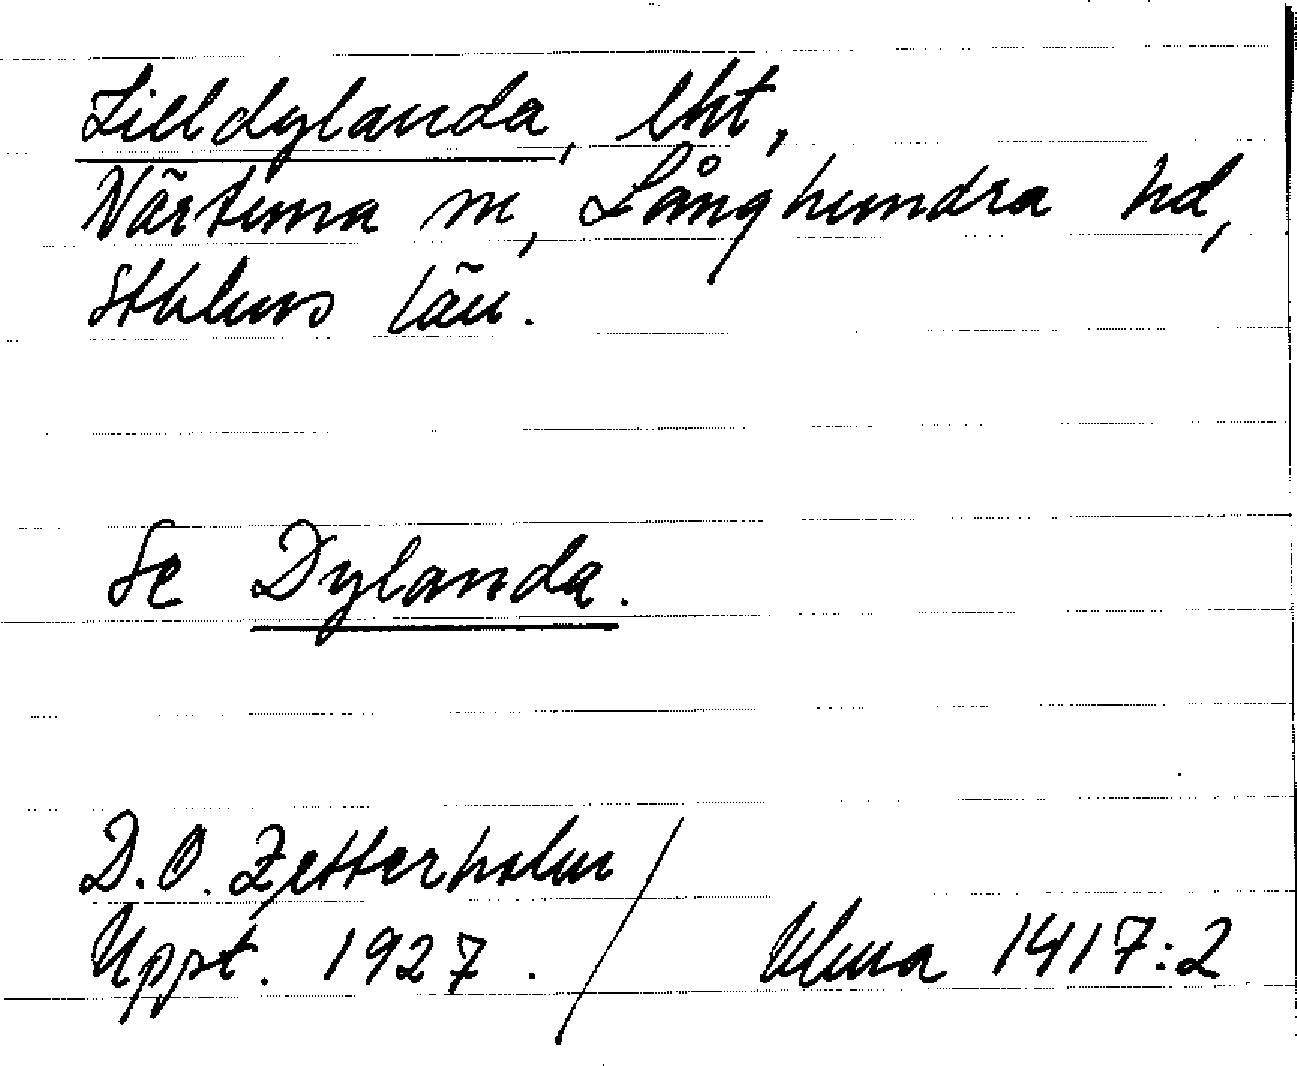 Lilldylanda, lht,
Närtuna sn, Långhundra hd,
Sthlms län.
Se Dylanda.
D.O. Zetterholm /
Uppt. 1927. Ulma 1417:2